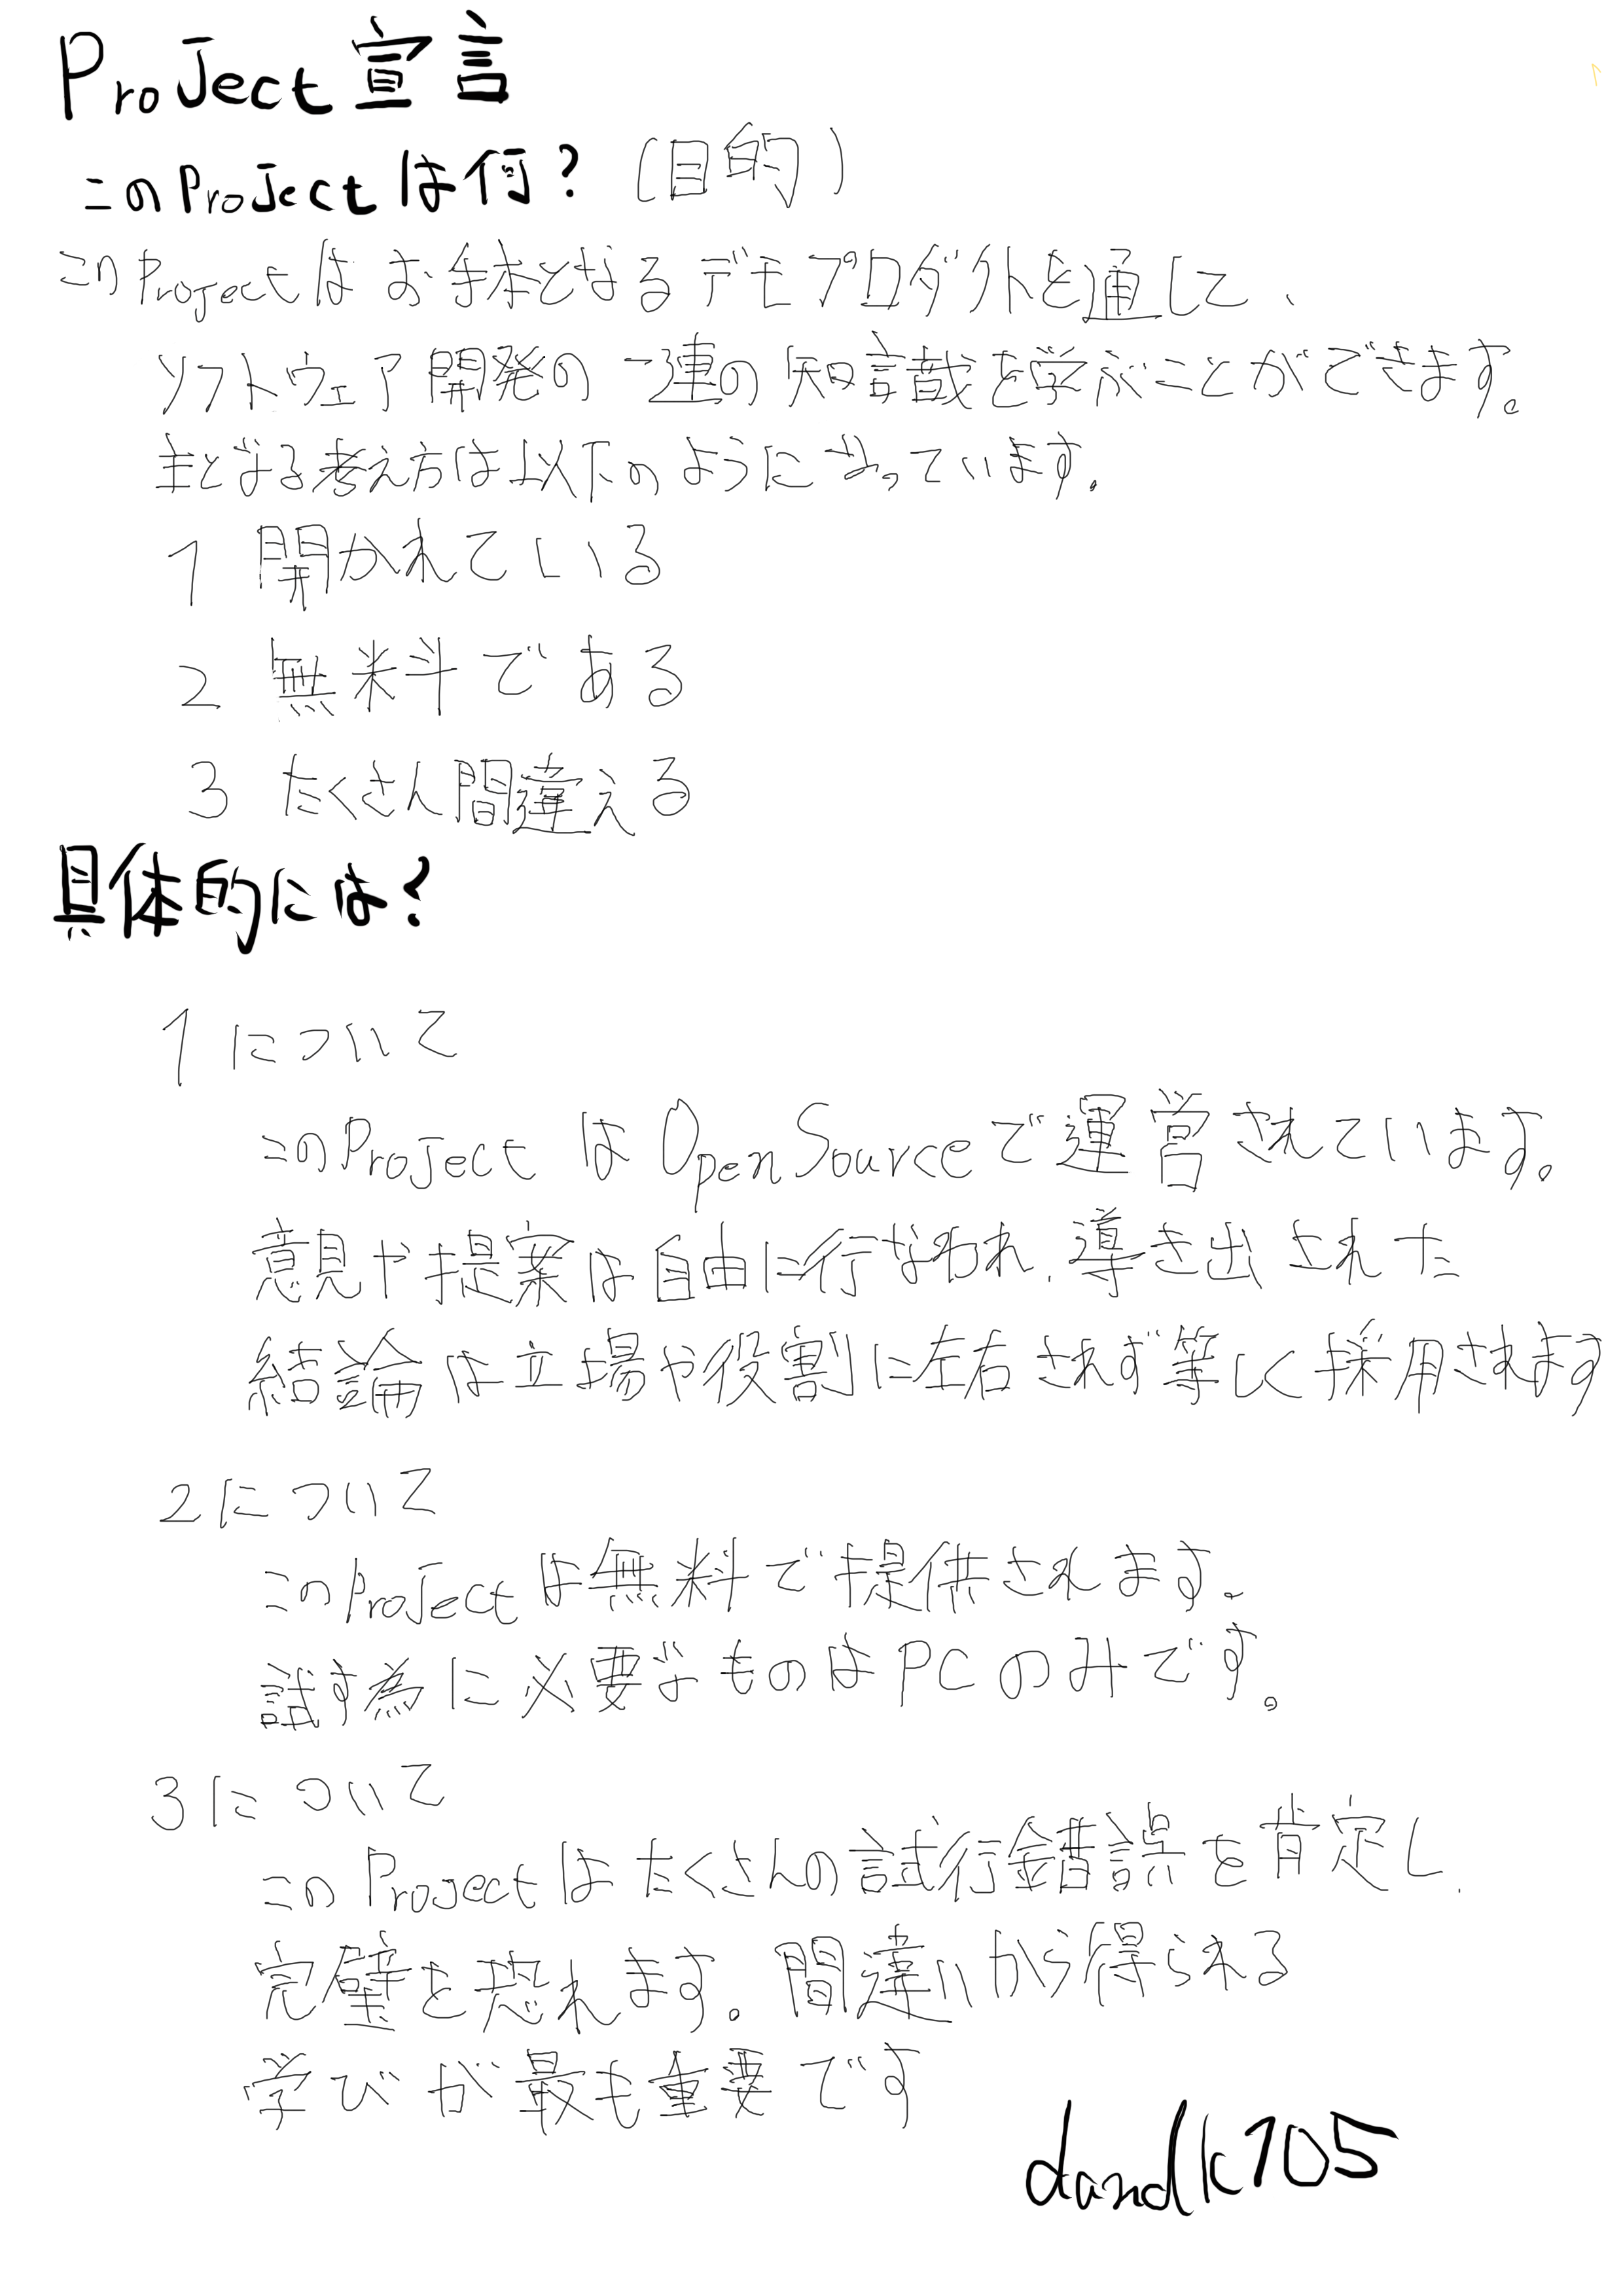 ProJect宣言
このProJectは何？(目的)
このProjectはお手本となるデモプロダクトを通して、
ソフトウェア開発の一連の知識を学ぶことができます。
主となる考え方は以下のようになっています。
1 開かれている
2 無料である
3 たくさん間違える
具体的には？
1について
このProjectはOpenSourceで運営されています。
意見や提案は自由に行なわれ、導き出された
結論は立場や役割に左右されず等しく採用されます
2について
このProJectは無料で提供されます。
試す為に必要なものはPCのみです。
3について
このProjectはたくさんの試行錯誤を肯定し、
完璧を恐れます。間違いから得られる
学びが最も重要です
dandk105